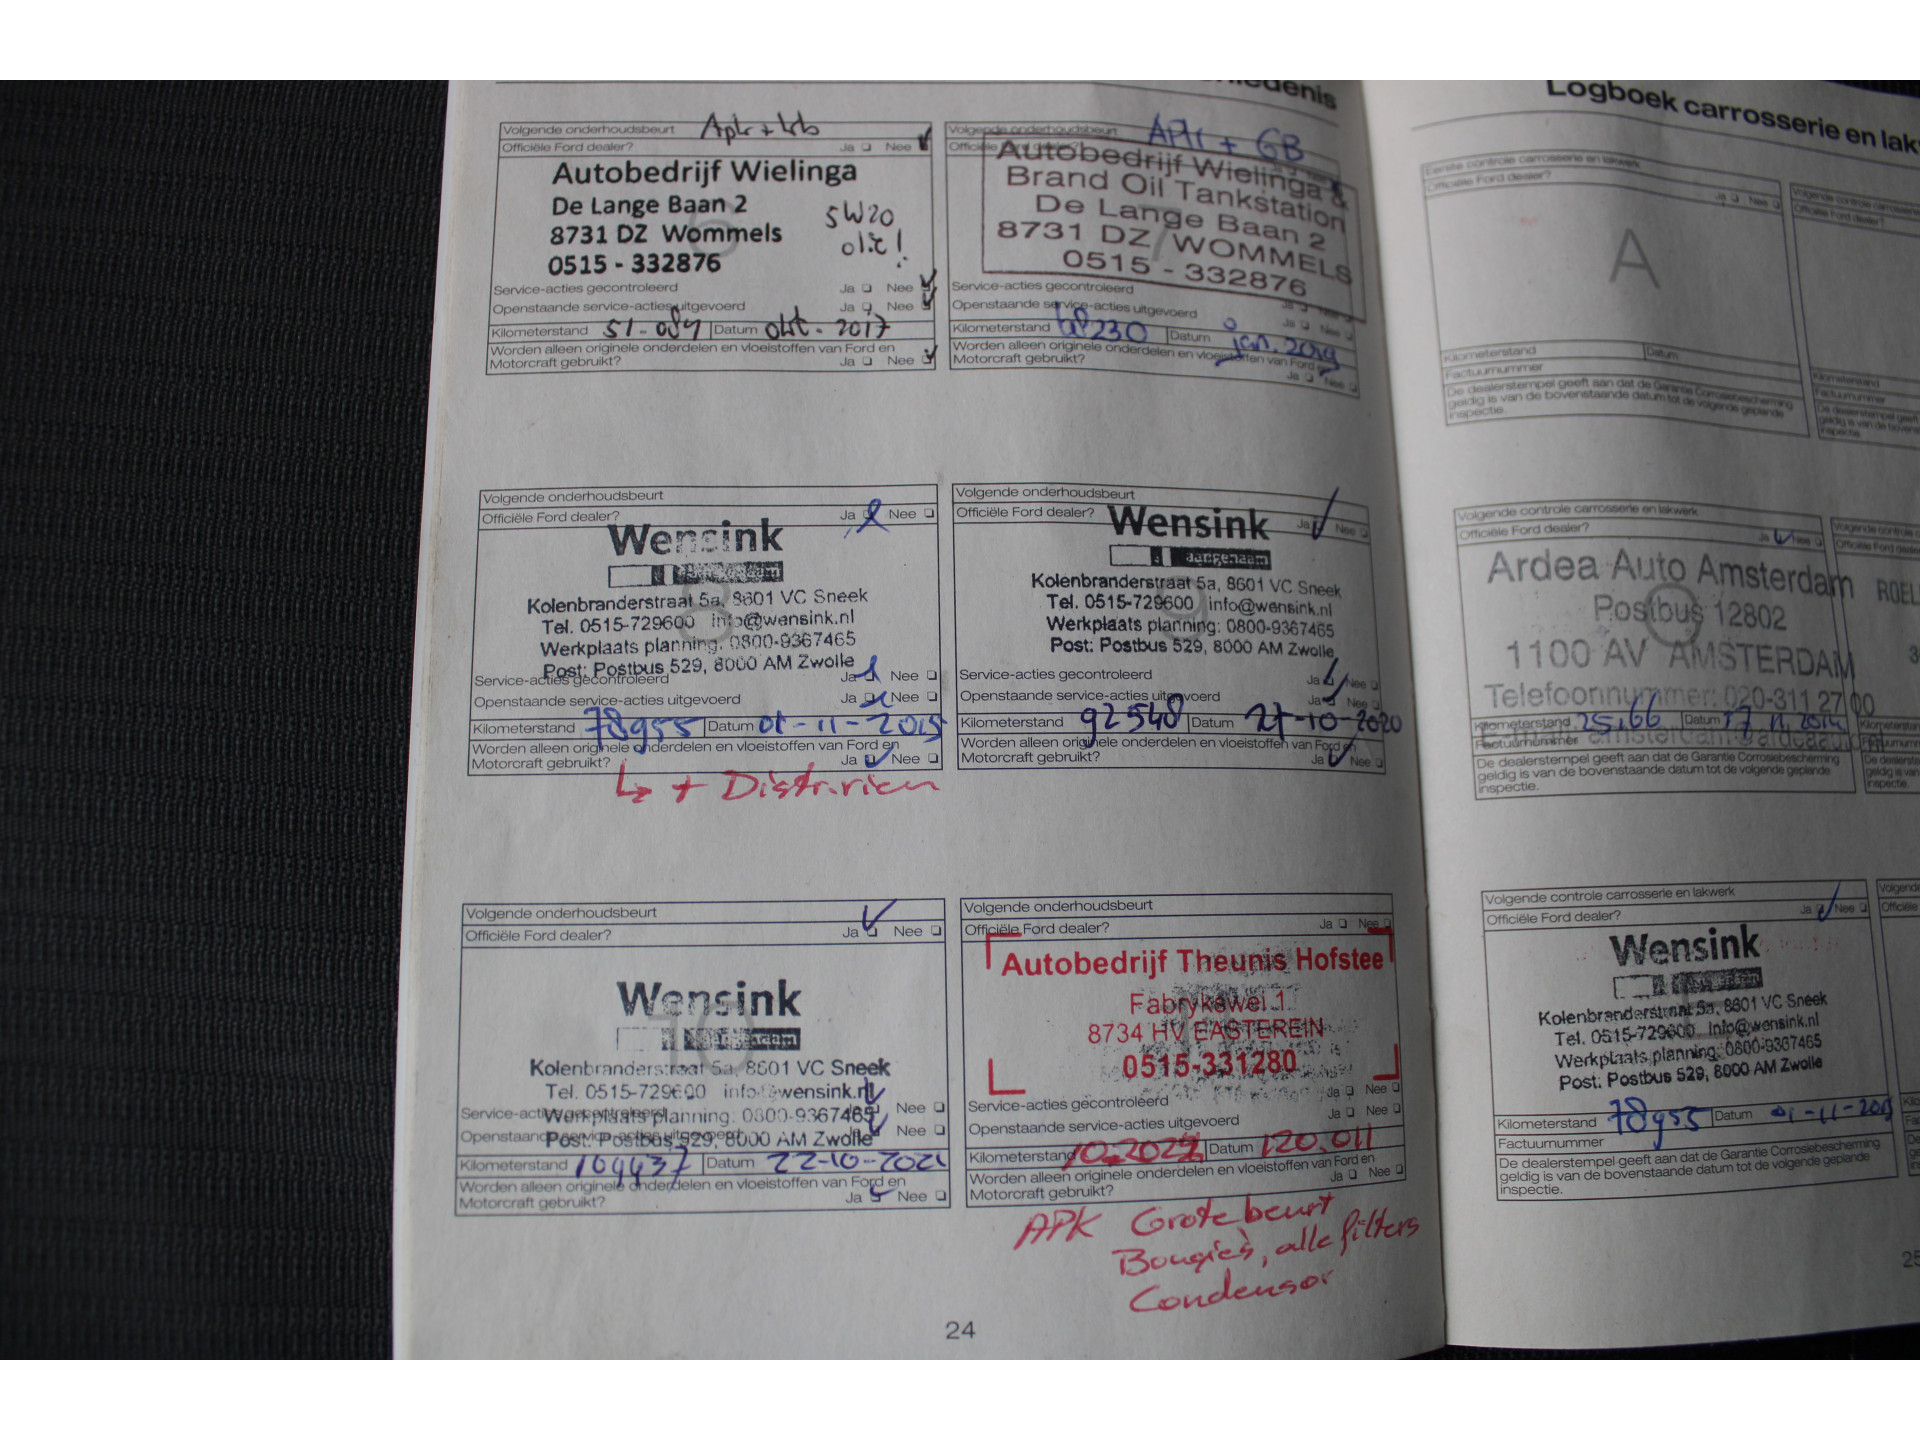 Volgende onderhoudsbeurt Apk +
Officiële Ford dealer? Ja Nee
Autobedrijf Wielinga
De Lange Baan 2
8731 DZ Wommels
0515 - 332876
5W20
olie!
6
Service-acties gecontroleerd Ja Nee
Openstaande service-acties uitgevoerd Ja Nee
Kilometerstand 51-084 Datum okt - 2017
Worden alleen originele onderdelen en vloeistoffen van Ford en
Motorcraft gebruikt? Ja Nee
Volgende onderhoudsbeurt APK + GB
Autobedrijf Wielinga &
Brand Oil Tankstation
De Lange Baan 2
8731 DZ WOMMELS
0515 - 332876
7
Service-acties gecontroleerd
Openstaande service-acties uitgevoerd Ja Nee
Kilometerstand 68230 Datum jan. 2019
Worden alleen originele onderdelen en vloeistoffen van Ford en
Motorcraft gebruikt? Ja Nee
Volgende onderhoudsbeurt
Officiële Ford dealer? Ja Nee
Wensink
aangenaam
Kolenbranderstraat 5a, 8601 VC Sneek
Tel. 0515-729600 info@wensink.nl
Werkplaats planning: 0800-9367465
Post: Postbus 529, 8000 AM Zwolle
8
Service-acties gecontroleerd Ja Nee
Openstaande service-acties uitgevoerd Ja Nee
Kilometerstand 78955 Datum 01-11-2019
Worden alleen originele onderdelen en vloeistoffen van Ford en
Motorcraft gebruikt? Ja Nee
+ Distr.riem
Volgende onderhoudsbeurt
Officiële Ford dealer? Ja Nee
Wensink
aangenaam
Kolenbranderstraat 5a, 8601 VC Sneek
Tel. 0515-729600 info@wensink.nl
Werkplaats planning: 0800-9367465
Post: Postbus 529, 8000 AM Zwolle
Service-acties gecontroleerd Ja Nee
Openstaande service-acties uitgevoerd Ja Nee
Kilometerstand 92548 Datum 27-10-2020
Worden alleen originele onderdelen en vloeistoffen van Ford en
Motorcraft gebruikt? Ja Nee
Volgende onderhoudsbeurt
Officiële Ford dealer? Ja Nee
Wensink
aangenaam
Kolenbranderstraat 5a, 8601 VC Sneek
Tel. 0515-729600 info@wensink.nl
Werkplaats planning: 0800-9367465
Post: Postbus 529, 8000 AM Zwolle
10
Service-acties gecontroleerd Nee
Openstaande service-acties uitgevoerd Nee
Kilometerstand 109437 Datum 22-10-2021
Worden alleen originele onderdelen en vloeistoffen van Ford en
Motorcraft gebruikt? Ja Nee
Volgende onderhoudsbeurt
Officiële Ford dealer? Ja Nee
Autobedrijf Theunis Hofstee
Fabrykswei 1
8734 HV EASTEREIN
0515-331280
Service-acties gecontroleerd Ja Nee
Openstaande service-acties uitgevoerd Ja Nee
Kilometerstand Datum 120.011
Worden alleen originele onderdelen en vloeistoffen van Ford en
Motorcraft gebruikt? Ja Nee
APK Grote beurt
Bougies, alle filters
Condensor
24
Logboek carrosserie en
Eerste controle carrosserie en lakwerk
Officiële Ford dealer? Ja Nee
A
Kilometerstand Datum
Factuurnummer
De dealerstempel geeft aan dat de Garantie Corrosiebescherming
geldig is van de bovenstaande datum tot de volgende geplande
inspectie.
Volgende controle carrosserie en lakwerk
Officiële Ford dealer? Ja Nee
Ardea Auto Amsterdam
Postbus 12802
1100 AV AMSTERDAM
Telefoonnummer: 020-311 27 00
Kilometerstand Datum
Factuurnummer
De dealerstempel geeft aan dat de Garantie Corrosiebescherming
geldig is van de bovenstaande datum tot de volgende geplande
inspectie.
Volgende controle carrosserie en lakwerk
Officiële Ford dealer? Ja Nee
Wensink
aangenaam
Kolenbranderstraat 5a, 8601 VC Sneek
Tel. 0515-729600 info@wensink.nl
Werkplaats planning: 0800-9367465
Post: Postbus 529, 8000 AM Zwolle
Kilometerstand 78955 Datum 01-11-2019
Factuurnummer
De dealerstempel geeft aan dat de Garantie Corrosiebescherming
geldig is van de bovenstaande datum tot de volgende geplande
inspectie.